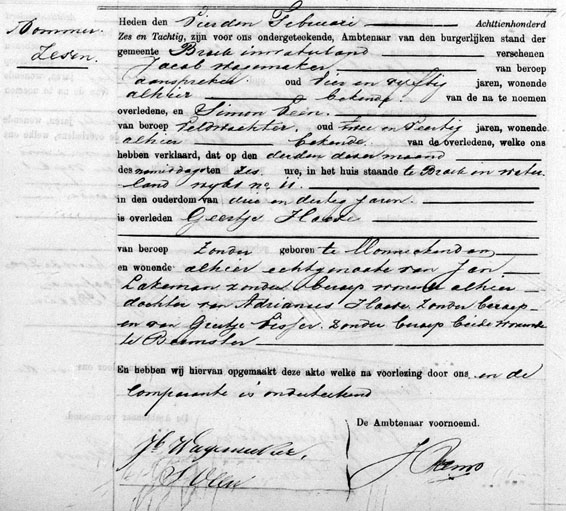 Nommer
Zeven.
Heden den Vierden Februari Achttienhonderd
Zes en Tachtig, zijn voor ons ondergeteekende, Ambtenaar van den burgerlijken stand der
gemeente Broek in waterland verschenen
Jacob Wagemaker van beroep
aanspreker oud vier en vijftig jaren, wonende
alhier bekende van de na te noemen
overledene, en Simon Veen
van beroep Veldwachter, oud twee en veertig jaren, wonende
alhier bekende van de overledene, welke ons
hebben verklaard, dat op den derden dezer maand
des namiddags ten ure, in het huis staande te Broek in water
land wijk no 11.
in den ouderdom van drie en dertig jaren
is overleden Geertje
van beroep Zonder geboren te Monnickendam
en wonende alhier echtgenoote van Jan
Lakeman zonder beroep wonende alhier
dochter van Adrianus zonder beroep
en van Grietje Visser zonder beroep beide wonende
te Beemster
En hebben wij hiervan opgemaakt deze akte welke na voorlezing door ons en de
Comparante is onderteekend
De Ambtenaar voornoemd.
Jb Wagemaker,
S Veen